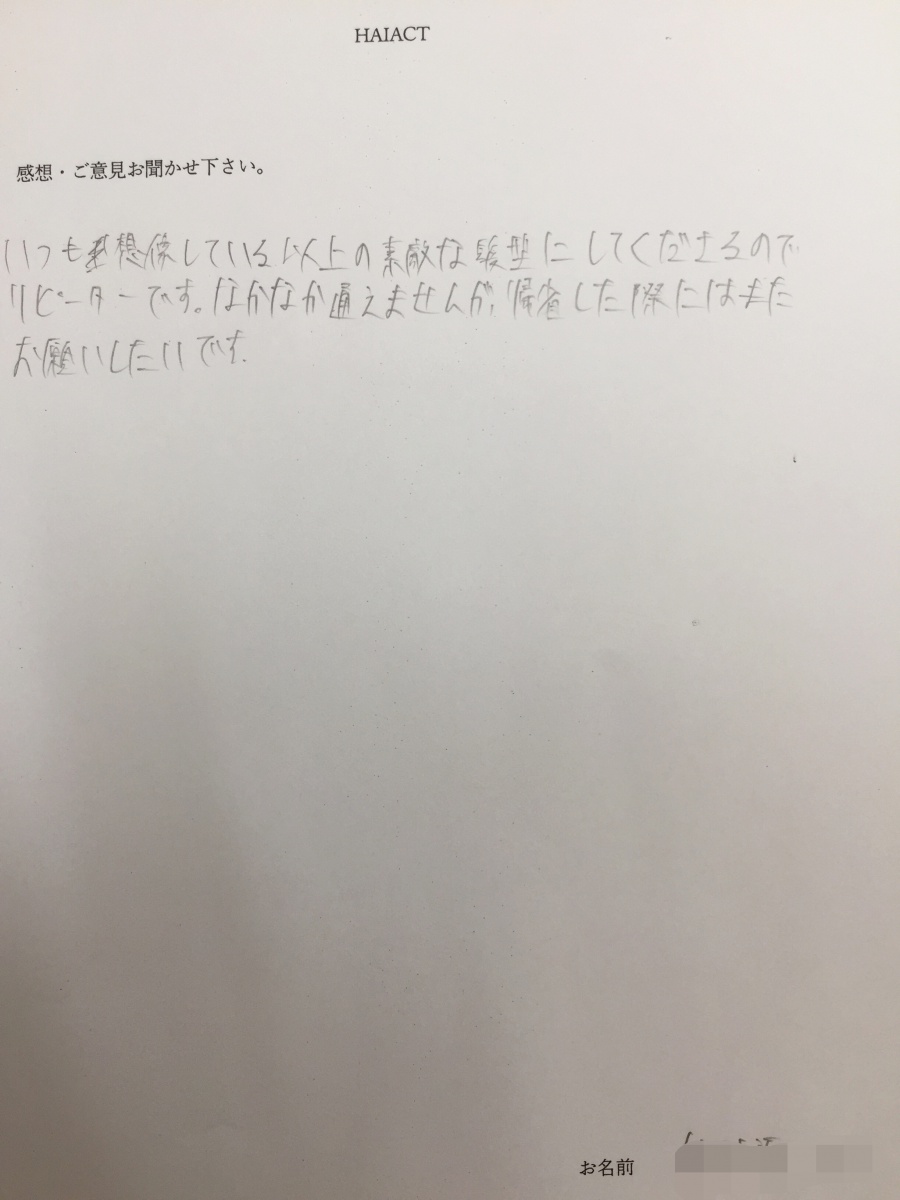 HAIACT
感想・ご意見お聞かせ下さい。
いつも想像している以上の素敵な髪型にしてくださるので
リピーターです。なかなか通えませんが、帰省した際にはまた
お願いしたいです。
お名前